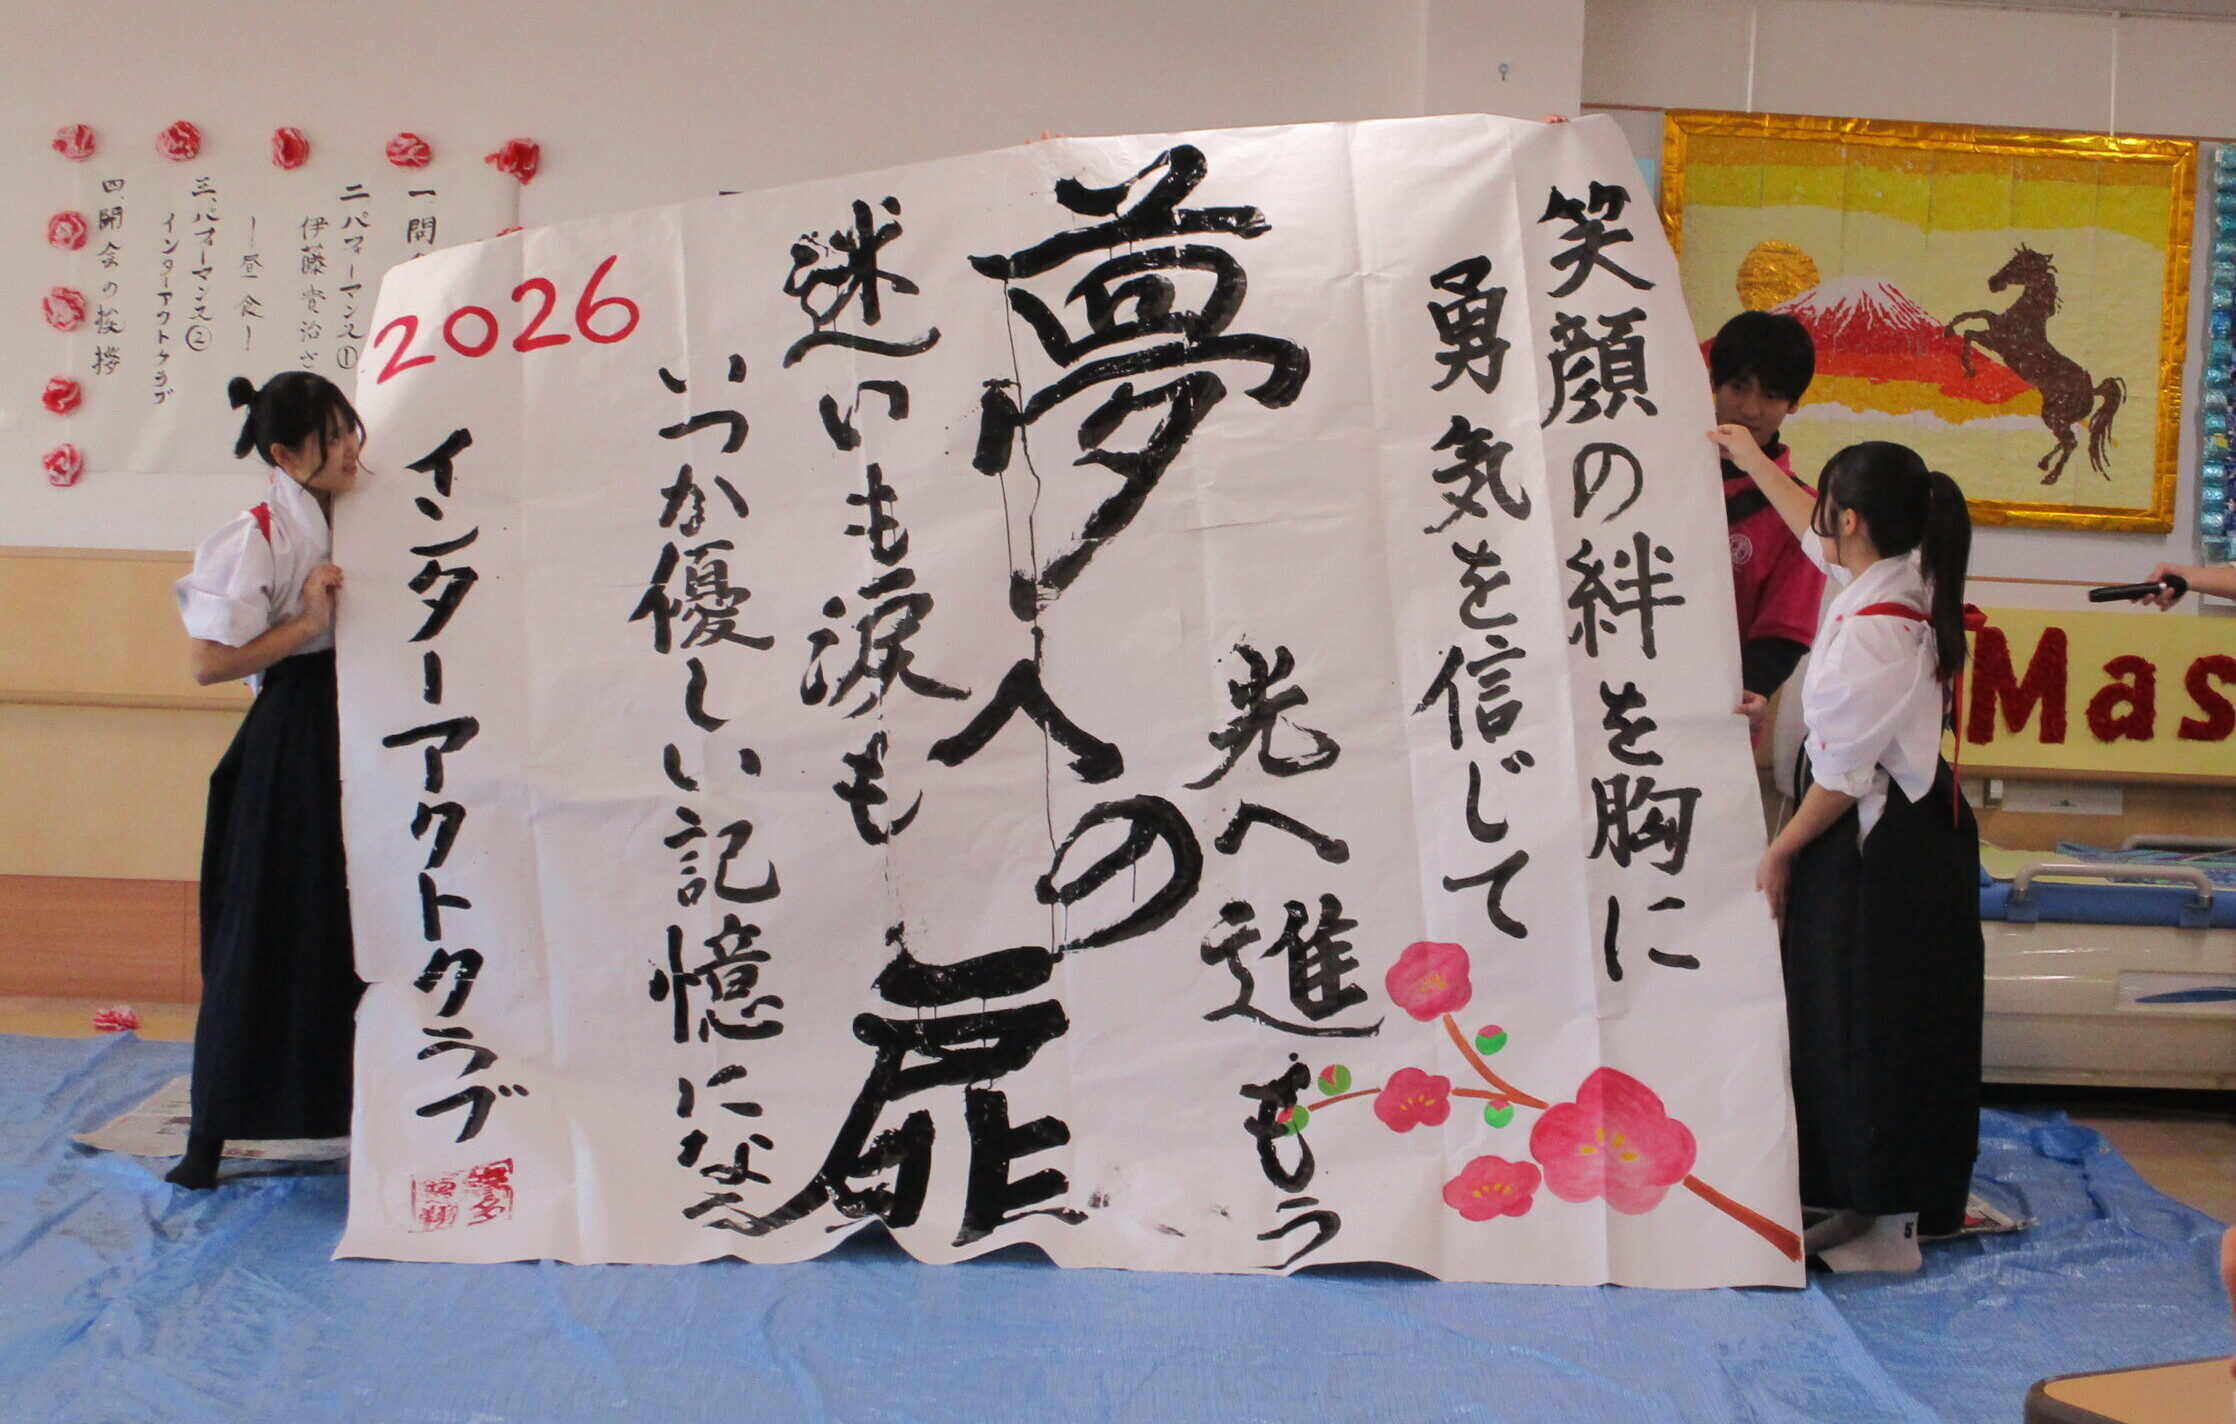 笑顔の絆を胸に
勇気を信じて
光へ進もう
夢への扉
迷いも涙も
いつか優しい記憶になる
2026
インターアクトクラブ
一
二 パフォーマンス①
伊藤貴治さ
ー昼食ー
三、パフォーマンス②
インターアクトクラブ
四、閉会の挨拶
Mas